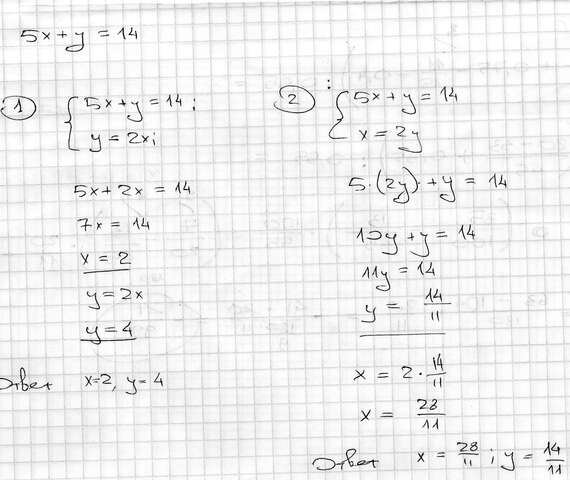 5x+y=14
1
{ 5x+y=14;
y=2x;
5x+2x=14
7x=14
x=2
y=2x
y=4
Ответ x=2, y=4
2 :
{ 5x+y=14
x=2y
5·(2y)+y=14
10y+y=14
11y=14
y=14/11
x=2·14/11
x=28/11
Ответ x=28/11; y=14/11